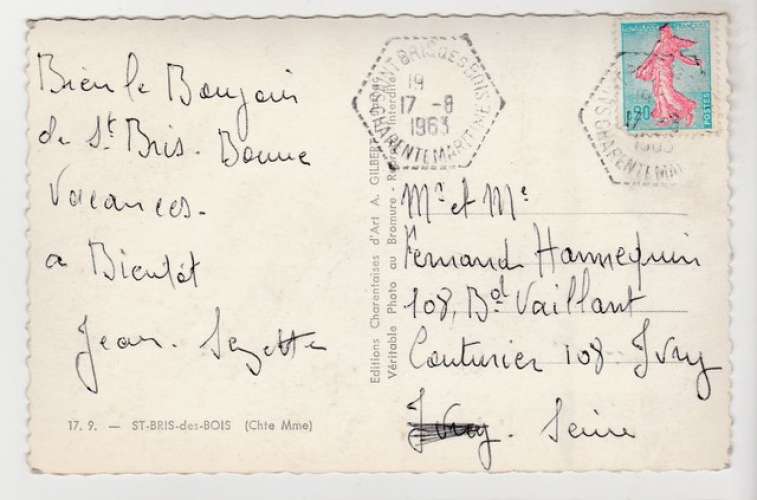 Bien le Bonjour
de St Bris. Bonne
Vacances.
a Bientôt
Jean.
17. 9. — ST-BRIS-des-BOIS (Chte Mme)
Editions Charentaises d'Art A. GILBERT
Véritable Photo au Bromure - Interdite
SAINT BRIS DES BOIS
19
17 -8
1963
CHARENTE MARITIME
POSTES
17 -8
1963
CHARENTE
Mr et Me
Fernand Hannequin
108, Bd Vaillant
Couturier 108 Ivry
Ivry. Seine